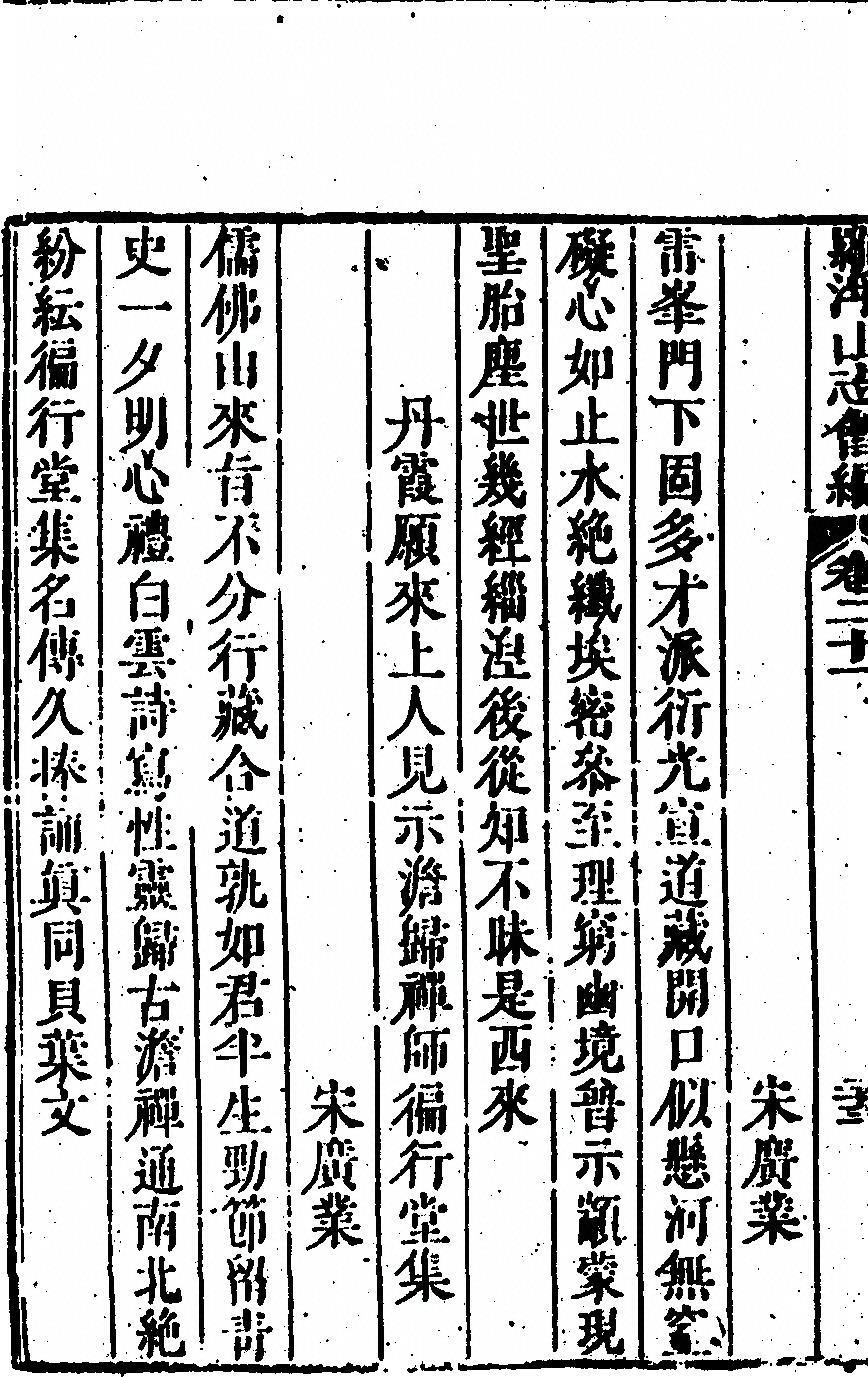 羅浮山志會編 卷二十一
宋廣業
雷峯門下固多才派衍光宣道藏開口似懸河無窒
礙心如止水絶纖埃密叅至理窮幽境普示顓蒙現
聖胎塵世幾經緇湼後從知不昧是西來
丹霞願來上人見示澹歸禪師徧行堂集
宋廣業
儒佛由來旨不分行藏合道孰如君半生勁節留青
史一夕明心禮白雲詩寫性靈歸古澹禪通南北絶
紛紜徧行堂集名傳久捧誦真同貝葉文